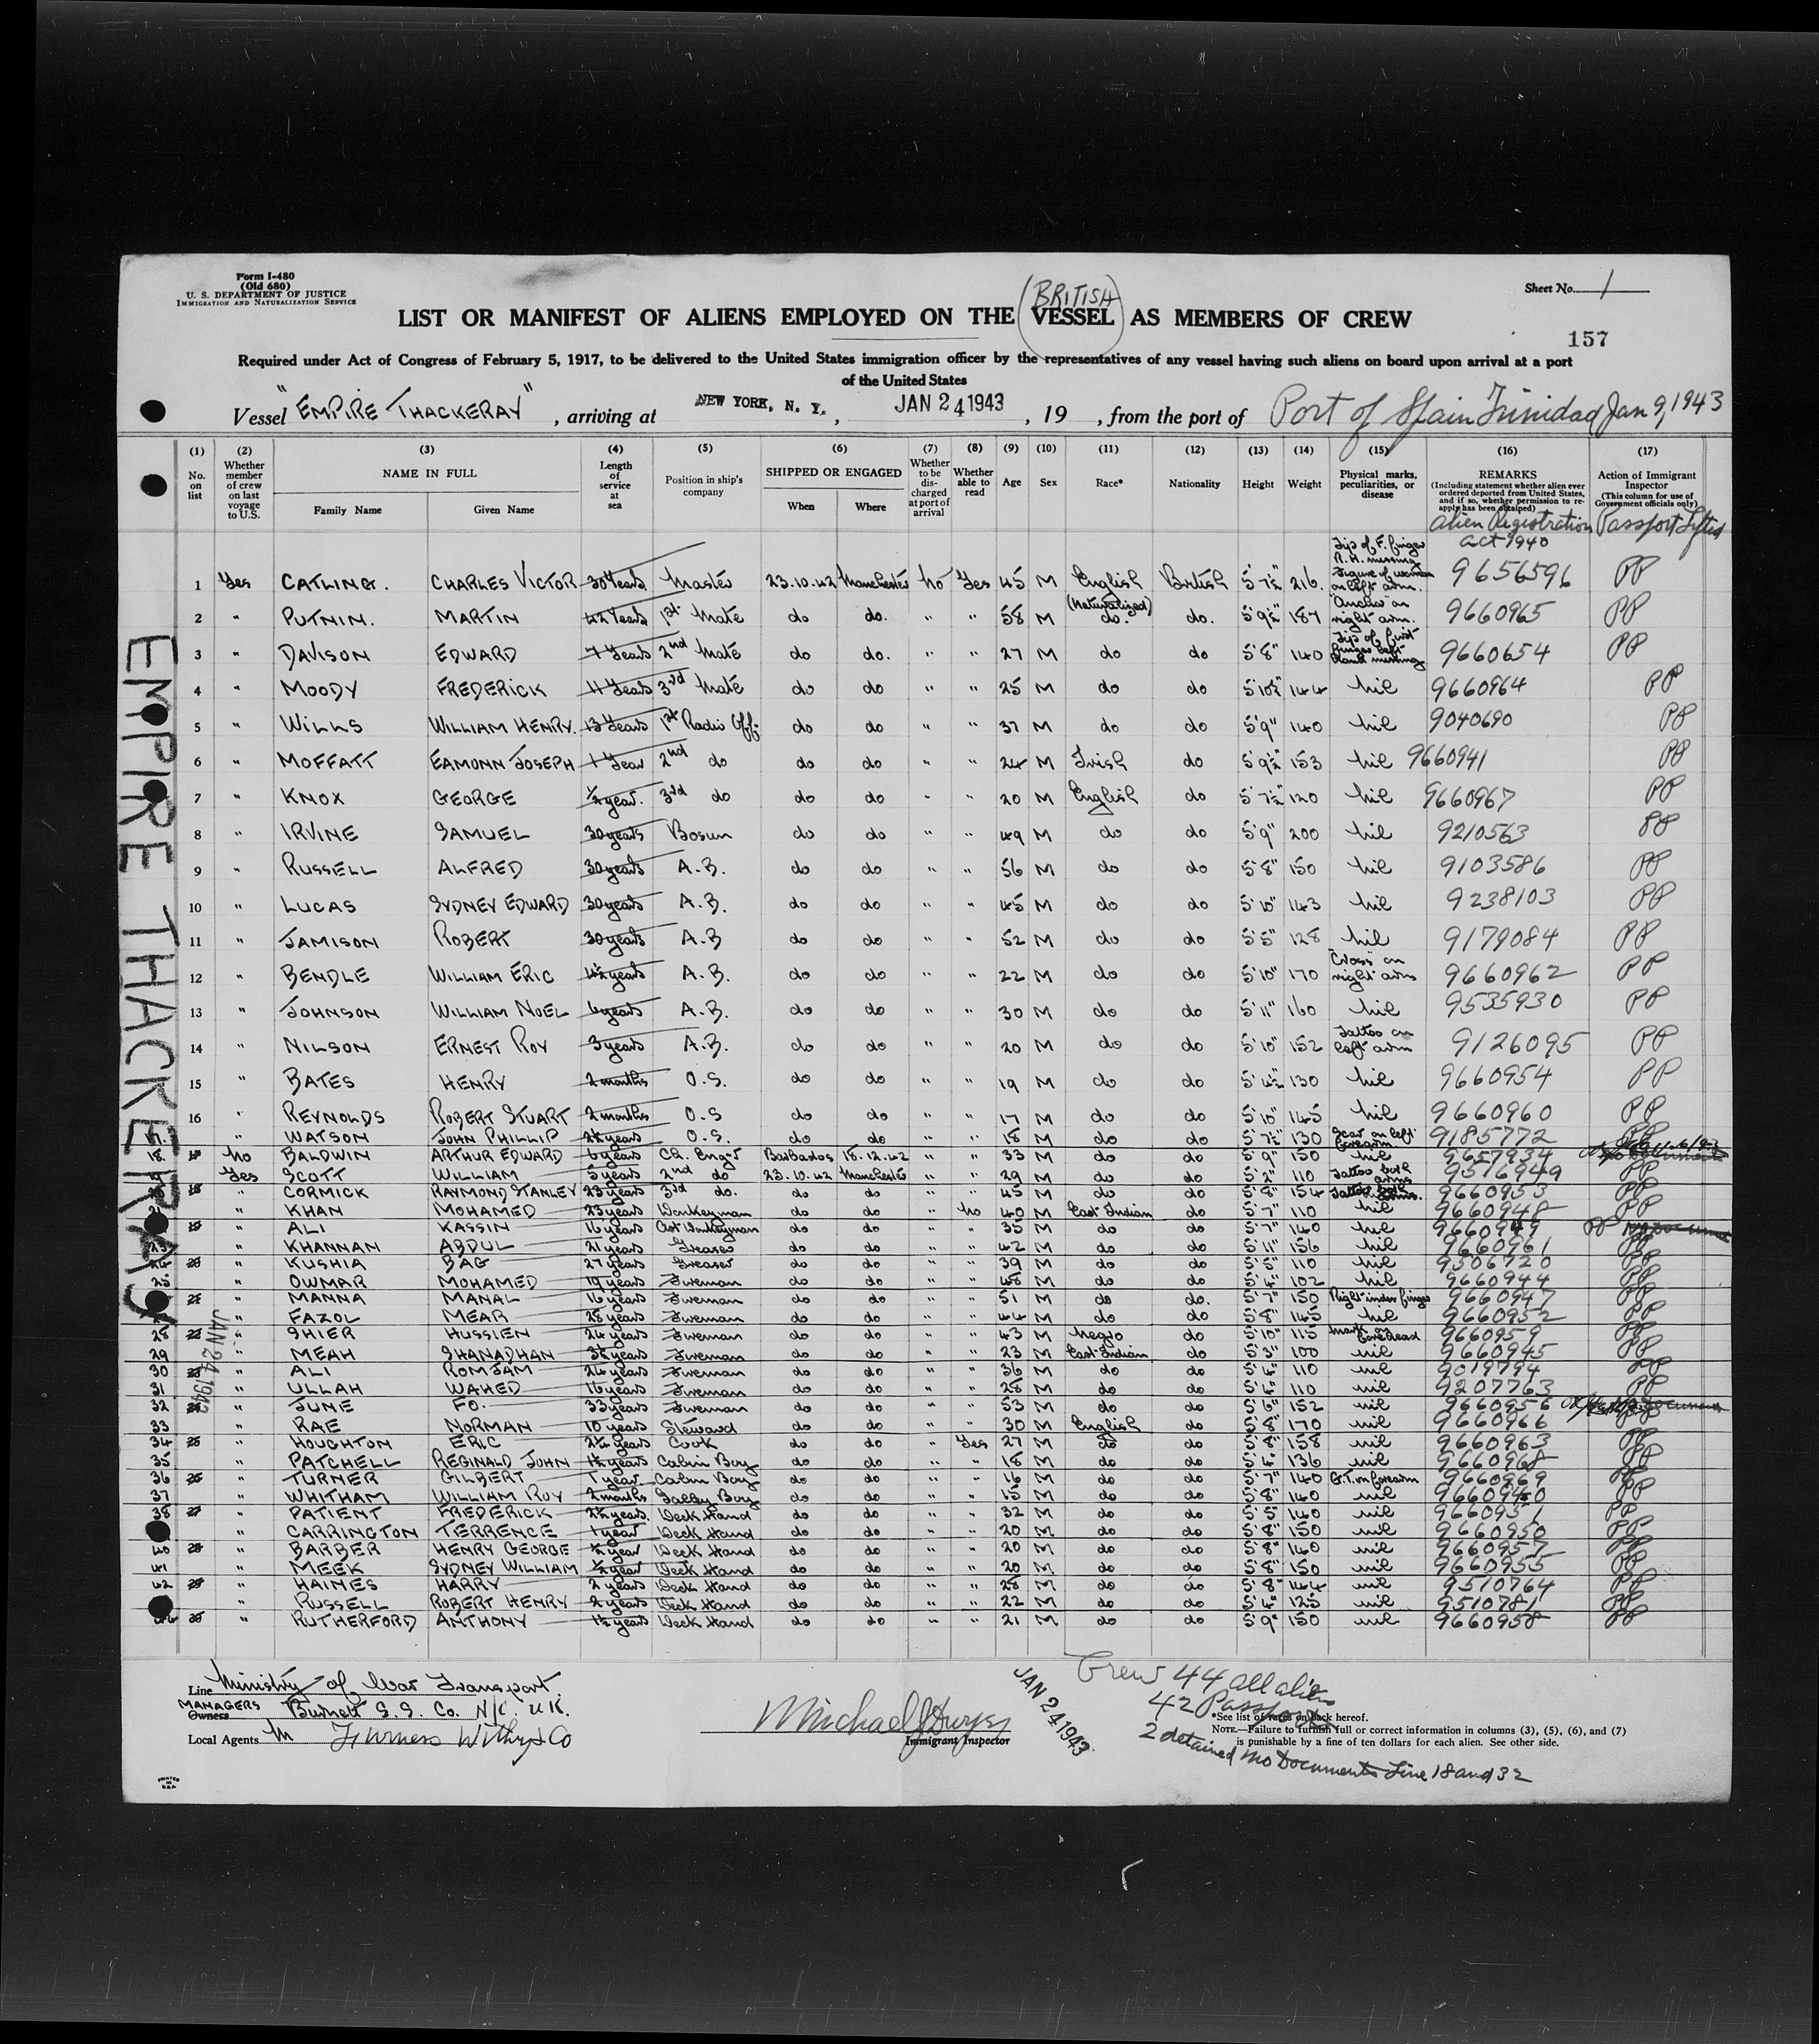 Form I-480
(Old 680)
U. S. DEPARTMENT OF JUSTICE
IMMIGRATION AND NATURALIZATION SERVICE
Sheet No. 1
(BRITISH)
LIST OR MANIFEST OF ALIENS EMPLOYED ON THE VESSEL AS MEMBERS OF CREW
157
Required under Act of Congress of February 5, 1917, to be delivered to the United States immigration officer by the representatives of any vessel having such aliens on board upon arrival at a port
of the United States
Vessel "EMPIRE THACKERAY", arriving at NEW YORK, N. Y., JAN 24 1943, 19 , from the port of Port of Spain Trinidad Jan 9, 1943
(1) No. on list
(2) Whether member of crew on last voyage to U.S.
(3) NAME IN FULL Family Name Given Name
(4) Length of service at sea
(5) Position in ship's company
(6) SHIPPED OR ENGAGED When Where
(7) Whether to be discharged at port of arrival
(8) Whether able to read
(9) Age
(10) Sex
(11) Race*
(12) Nationality
(13) Height
(14) Weight
(15) Physical marks, peculiarities, or disease
(16) REMARKS (Including statement whether alien ever ordered deported from United States, and if so, whether permission to reapply has been obtained) Alien Registration Act 1940
(17) Action of Immigrant Inspector (This column for use of Government officials only) Passport Lifted
1 Yes CATLING. CHARLES VICTOR 30 Years Master 23.10.42 Manchester No Yes 45 M English British 5'7½" 216. Tip of F. finger R.H. missing Figure of woman on left arm. 9656596 PP
2 " PUTNIN. MARTIN 42 Years 1st Mate do do. " " 58 M (Naturalized) do. do. 5'9½" 187 "Anchor" on right arm. 9660965 PP
3 " DAVISON EDWARD 7 Years 2nd Mate do do. " " 27 M do do 5'8" 140 Tip of first finger left hand missing 9660654 PP
4 " MOODY FREDERICK 11 Years 3rd Mate do do " " 25 M do do 5'10½" 144 Nil 9660964 PP
5 " WILLS WILLIAM HENRY. 13 Years 1st Radio Off: do do " " 37 M do do 5'9" 140 Nil 9040690 PP
6 " MOFFATT EAMUNN JOSEPH 1 Year 2nd do do do " " 24 M Irish do 5'9½" 153 Nil 9660941 PP
7 " KNOX GEORGE ½ year. 3rd do do do " " 20 M English do 5'7½" 120 Nil 9660967 PP
8 " IRVINE SAMUEL 30 years Bosun do do " " 49 M do do 5'9" 200 Nil 9210563 PP
9 " RUSSELL ALFRED 30 years A.B. do do " " 56 M do do 5'8" 150 Nil 9103586 PP
10 " LUCAS SYDNEY EDWARD 30 years A.B. do do " " 45 M do do 5'10" 143 Nil 9238103 PP
11 " JAMISON ROBERT 30 years A.B do do " " 52 M do do 5'5" 128 Nil 9179084 PP
12 " BENDLE WILLIAM ERIC 4½ years A.B. do do " " 22 M do do 5'10" 170 Cross on right arm 9660962 PP
13 " JOHNSON WILLIAM NOEL 6 years A.B. do do " " 30 M do do 5'11" 160 Nil 9535930 PP
14 " NILSON ERNEST ROY 3 years A.B. do do " " 20 M do do 5'10" 152 Tattoo on left arm 9126095 PP
15 " BATES HENRY 2 months O.S. do do " " 19 M do do 5'4½" 130 Nil 9660954 PP
16 " REYNOLDS ROBERT STUART 2 months O.S do do " " 17 M do do 5'10" 145 Nil 9660960 PP
17. " WATSON JOHN PHILLIP 2½ years O.S. do do " " 18 M do do 5'7½" 130 Scar on left forearm 9185772 PP
18. No BALDWIN ARTHUR EDWARD 6 years Ch. Eng-r Barbados 18.12.42 " " 33 M do do 5'9" 150 Nil 9657934 No Document
Yes SCOTT WILLIAM 5 years 2nd do 23.10.42 Manchester " " 29 M do do 5'2" 110 Tattoo both arms 9516949 PP
" CORMICK RAYMOND STANLEY 23 years 3rd do. do do " " 45 M do do 5'8" 154 Tattoo both arms. 9660953 PP
" KHAN MOHAMED 23 years Donkeyman do do " No 40 M East Indian do 5'7" 110 Nil 9660948 PP
" ALI KASSIN 16 years Asst Donkeyman do do " " 35 M do do 5'7" 140 Nil 9660949 PP No Document
" KHANNAN ABDUL 21 years Greaser do do " " 42 M do do 5'11" 156 Nil 9660961 PP
24 " KUSHIA BAG 27 years Greaser do do " " 39 M do do 5'5" 110 Nil 9506720 PP
25 " OWMAR MOHAMED 19 years Fireman do do " " 48 M do do 5'4" 102 Nil 9660944 PP
" MANNA MANAL 16 years Fireman do do " " 51 M do do. 5'7" 150 Right index finger 9660947 PP
" FAZOL MEAR 28 years Fireman do do " " 44 M do do 5'8" 145 Nil 9660952 PP
28 " SHIER HUSSIEN 24 years Fireman do do " " 43 M Negro do 5'10" 115 Mark on forehead 9660959 PP
29 " MEAH SHANADHAN 3½ years Fireman do do " " 23 M East Indian do 5'3" 100 Nil 9660945 PP
30 " ALI ROMJAM 24 years Fireman do do " " 36 M do do 5'4" 110 Nil 9019794 PP
31 " ULLAH WAHED 16 years Fireman do do " " 28 M do do 5'4" 110 Nil 9207763 PP
32 " JUNE FO. 33 years Fireman do do " " 53 M do do 5'6" 152 Nil 9660956 Document
33 " RAE NORMAN 10 years Steward do do " " 30 M English do 5'8" 170 Nil 9660966 PP
34 " HOUGHTON ERIC 2½ years Cook do do " Yes 27 M do do 5'8" 158 Nil 9660963 PP
35 " PATCHELL REGINALD JOHN 1½ years Cabin Boy do do " " 18 M do do 5'4" 136 Nil 9660968 PP
36 " TURNER GILBERT 1 year Cabin Boy do do " " 16 M do do 5'7" 140 G.T. on forearm 9660969 PP
37 " WHITHAM WILLIAM ROY 2 months Galley Boy do do " " 15 M do do 5'8" 140 Nil PP
38 " PATIENT FREDERICK 2½ years. Deck Hand do do " " 32 M do do 5'5" 140 Nil 9660951 PP
" CARRINGTON TERRENCE 1 year Deck Hand do do " " 20 M do do 5'8" 150 Nil 9660950 PP
40 " BARBER HENRY GEORGE ½ year Deck Hand do do " " 20 M do do 5'8" 140 Nil 9660957 PP
41 " MEEK SYDNEY WILLIAM ½ year Deck Hand do do " " 20 M do do 5'8" 150 Nil 9660955 PP
42 " HAINES HARRY 2 years Deck Hand do do " " 28 M do do 5'8" 144 Nil 9510764 PP
" RUSSELL ROBERT HENRY 2 years Deck Hand do do " " 22 M do do 5'4" 125 Nil 9510781 PP
44 " RUTHERFORD ANTHONY 1½ years Deck Hand do do " " 21 M do do 5'9" 150 Nil 9660958 PP
EMPIRE THACKERAY
JAN 24 1943
Line Ministry of War Transport.
MANAGERS
Owners Burnett S.S. Co. N/C. U.K.
Local Agents Furness Withy & Co
Michael J Dwyer
Immigrant Inspector
JAN 24 1943
Crew 44 all aliens
42 Passports
2 detained no Documents Line 18 and 32
*See list of races on back hereof.
NOTE.—Failure to furnish full or correct information in columns (3), (5), (6), and (7)
is punishable by a fine of ten dollars for each alien. See other side.
PRINTED IN U.S.A.